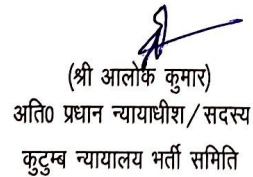 (श्री आलोक कुमार)
अति0 प्रधान न्यायाधीश/सदस्य
कुटुम्ब न्यायालय भर्ती समिति